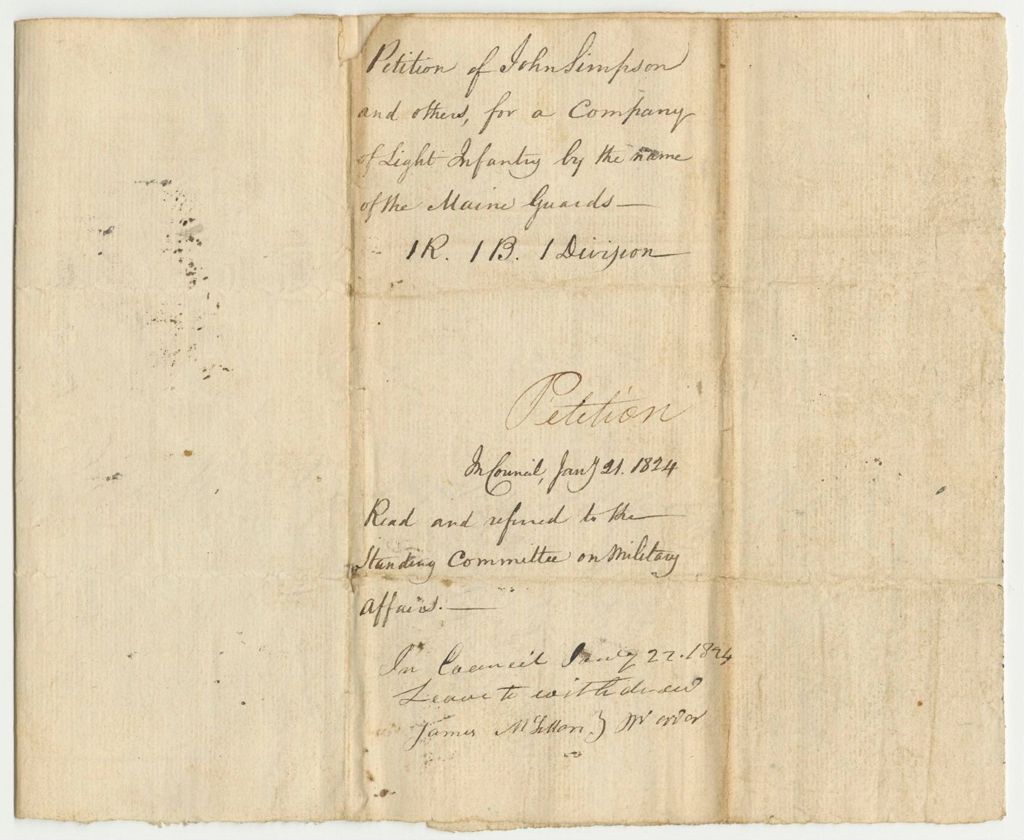 Petition of John Simpson
and others, for a Company
of Light Infantry by the name
of the Maine Guards—
1 R. 1 B. 1 Division
Petition
In Council, Jany 21. 1824
Read and referred to the
Standing Committee on Military
Affairs.—
In Council Jany 22. 1824
Leave to withdraw
James pr order